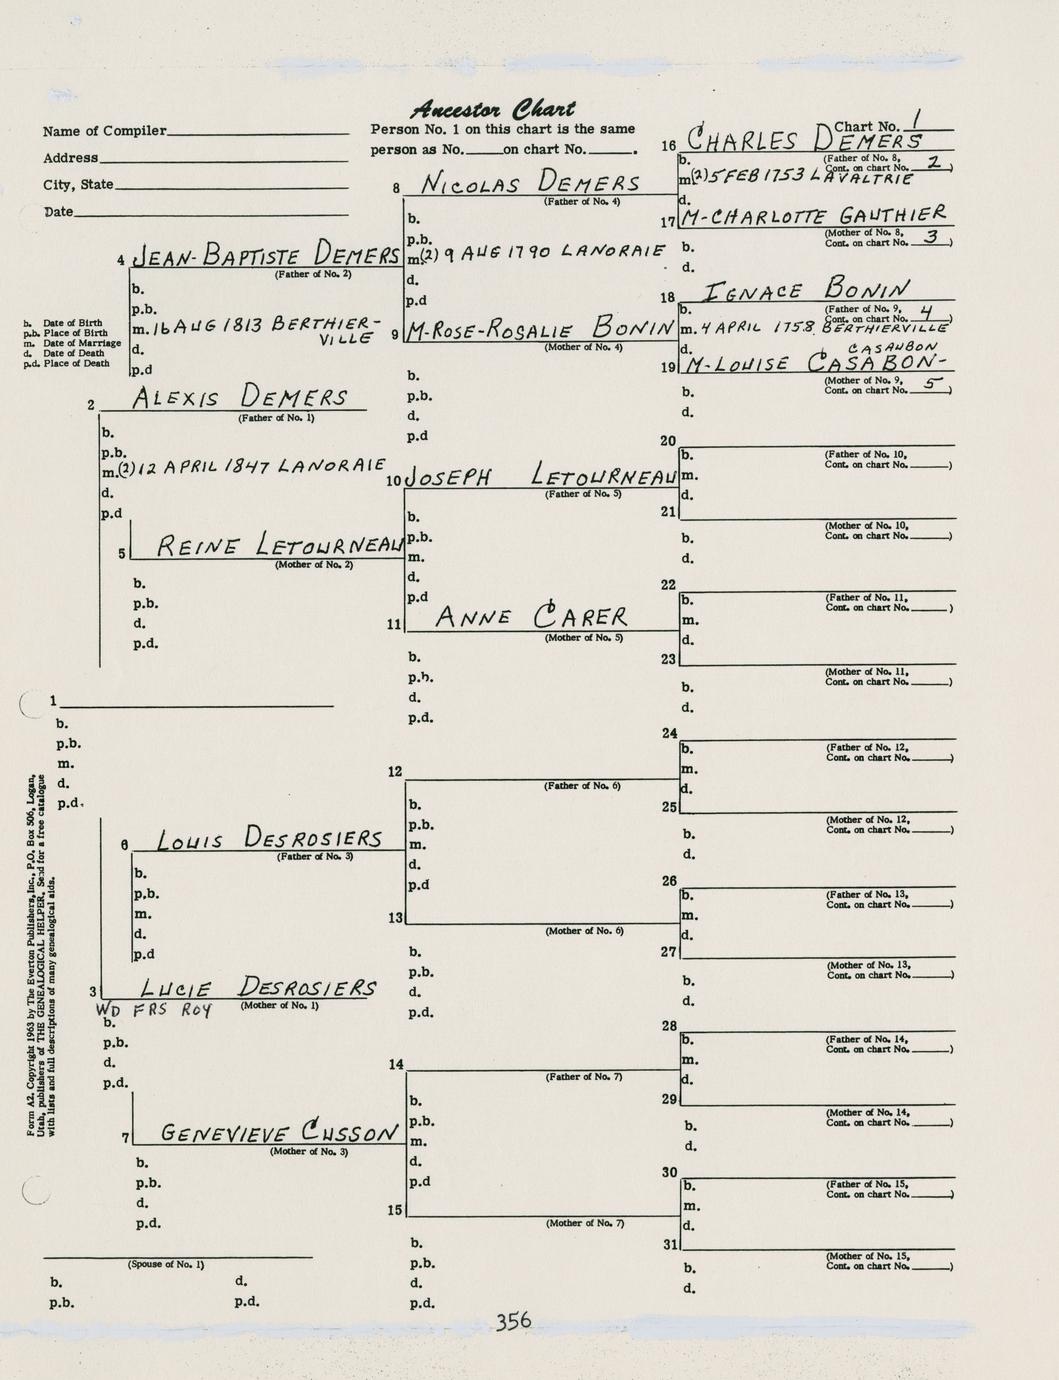 Ancestor Chart
Name of Compiler
Address
City, State
Date
Person No. 1 on this chart is the same
person as No. on chart No. .
Chart No. 1
b. Date of Birth
p.b. Place of Birth
m. Date of Marriage
d. Date of Death
p.d. Place of Death
1
b.
p.b.
m.
d.
p.d.
2 ALEXIS DEMERS
(Father of No. 1)
b.
p.b.
m.(2) 12 APRIL 1847 LANORAIE
d.
p.d
3 LUCIE DESROSIERS
WD FRS ROY (Mother of No. 1)
b.
p.b.
d.
p.d.
4 JEAN-BAPTISTE DEMERS
(Father of No. 2)
b.
p.b.
m. 16 AUG 1813 BERTHIER-
VILLE
d.
p.d
5 REINE LETOURNEAU
(Mother of No. 2)
b.
p.b.
d.
p.d.
6 LOUIS DESROSIERS
(Father of No. 3)
b.
p.b.
m.
d.
p.d
7 GENEVIEVE CUSSON
(Mother of No. 3)
b.
p.b.
d.
p.d.
(Spouse of No. 1)
b. d.
p.b. p.d.
8 NICOLAS DEMERS
(Father of No. 4)
b.
p.b.
m(2) 9 AUG 1790 LANORAIE
d.
p.d
9 M-ROSE-ROSALIE BONIN
(Mother of No. 4)
b.
p.b.
d.
p.d
10 JOSEPH LETOURNEAU
(Father of No. 5)
b.
p.b.
m.
d.
p.d
11 ANNE CARER
(Mother of No. 5)
b.
p.b.
d.
p.d.
12
(Father of No. 6)
b.
p.b.
m.
d.
p.d
13
(Mother of No. 6)
b.
p.b.
d.
p.d.
14
(Father of No. 7)
b.
p.b.
m.
d.
p.d
15
(Mother of No. 7)
b.
p.b.
d.
p.d.
16 CHARLES DEMERS
b. (Father of No. 8,
Cont. on chart No. 2)
m(2) 5 FEB 1753 LAVALTRIE
d.
17 M-CHARLOTTE GAUTHIER
(Mother of No. 8,
b. Cont. on chart No. 3)
d.
18 IGNACE BONIN
b. (Father of No. 9, 4
Cont. on chart No. )
m. 4 APRIL 1758 BERTHIERVILLE
d. CASAUBON
19 M-LOUISE CASABON-
(Mother of No. 9,
b. Cont. on chart No. 5)
d.
20
b. (Father of No. 10,
Cont. on chart No. )
m.
d.
21
(Mother of No. 10,
b. Cont. on chart No. )
d.
22
b. (Father of No. 11,
Cont. on chart No. )
m.
d.
23
(Mother of No. 11,
b. Cont. on chart No. )
d.
24
b. (Father of No. 12,
Cont. on chart No. )
m.
d.
25
(Mother of No. 12,
b. Cont. on chart No. )
d.
26
b. (Father of No. 13,
Cont. on chart No. )
m.
d.
27
(Mother of No. 13,
b. Cont. on chart No. )
d.
28
b. (Father of No. 14,
Cont. on chart No. )
m.
d.
29
(Mother of No. 14,
b. Cont. on chart No. )
d.
30
b. (Father of No. 15,
Cont. on chart No. )
m.
d.
31
(Mother of No. 15,
b. Cont. on chart No. )
d.
Form A2. Copyright 1963 by The Everton Publishers, Inc., P.O. Box 506, Logan,
Utah, publishers of THE GENEALOGICAL HELPER. Send for a free catalogue
with lists and full descriptions of many genealogical aids.
356